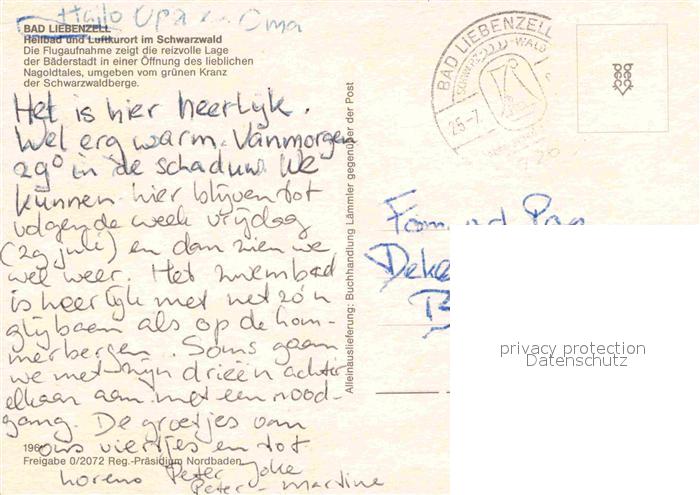 Hallo Opa en Oma
BAD LIEBENZELL
Heilbad und Luftkurort im Schwarzwald
Die Flugaufnahme zeigt die reizvolle Lage
der Bäderstadt in einer Öffnung des lieblichen
Nagoldtales, umgeben vom grünen Kranz
der Schwarzwaldberge.
Het is hier heerlijk.
Wel erg warm. Vanmorgen
29° in de schaduw. We
kunnen hier blijven tot
volgende week vrijdag
(29 juli) en dan zien we
wel weer. Het zwembad
is heerlijk met net zo'n
glijbaan als op de hom-
merbergen. Soms gaan
we met zijn drieën achter
elkaar aan met een nood-
gang. De groetjes van
ons viertjes en tot
horens Peter Joke
Peter - Martine
196
Freigabe 0/2072 Reg.-Präsidium Nordbaden
Alleinauslieferung: Buchhandlung Lämmler gegenüber der Post
BAD LIEBENZELL
25-7
Fam
Deke
B
privacy protection
Datenschutz